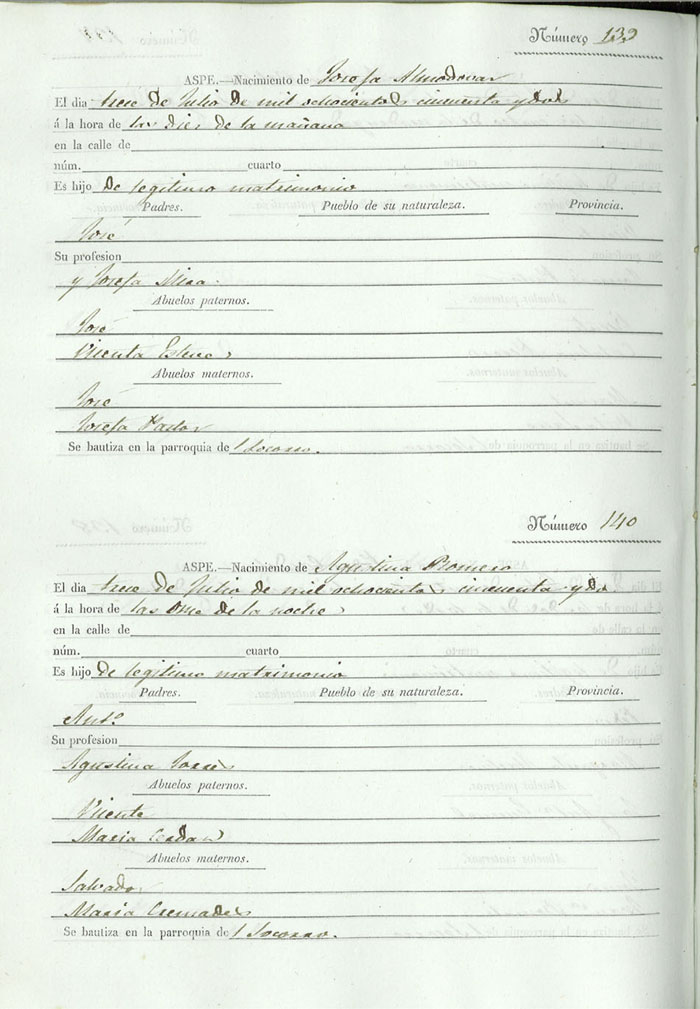 Número 139
ASPE.—Nacimiento de Josefa Almodovar
El dia trece de Julio de mil ochocientos cincuenta y dos
á la hora de las diez de la mañana
en la calle de
núm. cuarto
Es hijo de legitimo matrimonio
Padres. Pueblo de su naturaleza. Provincia.
José
Su profesion
y Josefa Mira.
Abuelos paternos.
José
Vicenta Esteve
Abuelos maternos.
José
Josefa Pastor
Se bautiza en la parroquia de l Socorro.
Número 140
ASPE.—Nacimiento de Agustina Romero
El dia trece de Julio de mil ochocientos cincuenta y dos
á la hora de las once de la noche
en la calle de
núm. cuarto
Es hijo de legitimo matrimonio
Padres. Pueblo de su naturaleza. Provincia.
Antº
Su profesion
Agustina Torres
Abuelos paternos.
Vicente
Maria Cerdan
Abuelos maternos.
Salvador
Maria Cremades
Se bautiza en la parroquia de l Socorro.